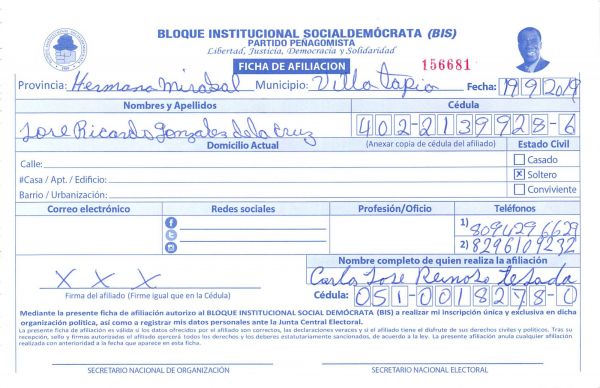 BLOQUE INSTITUCIONAL SOCIALDEMÓCRATA (BIS)
PARTIDO PEÑAGOMISTA
Libertad, Justicia, Democracia y Solidaridad
FICHA DE AFILIACION 156681
Provincia: Hermana Mirabal Municipio: Villa tapia Fecha: 19 9 2019
Nombres y Apellidos Cédula
Jose Ricardo Gonzales de la Cruz 402-2139928-6
Domicilio Actual (Anexar copia de cédula del afiliado) Estado Civil
Calle: Casado
#Casa / Apt. / Edificio: X Soltero
Barrio / Urbanización: Conviviente
Correo electrónico Redes sociales Profesión/Oficio Teléfonos
1) 8094296629
2) 8296109232
Nombre completo de quien realiza la afiliación
X X X Carlos Jose Reinoso tejada
Firma del afiliado (Firme igual que en la Cédula) Cédula: 051-0018278-0
Mediante la presente ficha de afiliación autorizo al BLOQUE INSTITUCIONAL SOCIAL DEMÓCRATA (BIS) a realizar mi inscripción única y exclusiva en dicha
organización política, así como a registrar mis datos personales ante la Junta Central Electoral.
La presente ficha de afiliación es válida si los datos ofrecidos por el afiliado son correctos, las declaraciones veraces y si el afiliado tiene el disfrute de sus derechos civiles y políticos. Tras su
recepción, sello y firmas autorizadas el afiliado ejercerá todos los derechos y los deberes estatutariamente sancionados, de acuerdo a la ley. La presente afiliación anula cualquier afiliación
realizada con anterioridad a la fecha que aparece en esta ficha.
SECRETARIO NACIONAL DE ORGANIZACIÓN SECRETARIO NACIONAL ELECTORAL